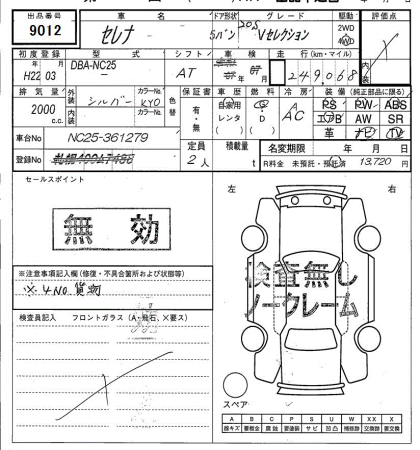 出品番号 車名 ドア形状 グレード 駆動 評価点
9012 セレナ 5バン 20S Vセレクション 2WD 4WD
初度登録 型式 シフト 車検 走行(km・マイル) 内装
年 月 DBA-NC25 AT 年 月 249,068
H22 03 −
排気量 外装 カラーNo. 内装 カラーNo. 色替 保証書 車歴 燃料 冷房 装備(純正部品に限る)
2000 c.c. シルバー KY0 有・無 自家用 レンタ ( ) G・D ( ) AC PS PW ABS
エアB AW SR
革 ナビ TV
車台No NC25-361279 定員 積載量 名変期限 年 月 日
登録No 2人 t R料金 未預託・預託済 13,720 円
セールスポイント
無効
※注意事項記入欄(修復・不具合箇所および状態等)
※4NO貨物
検査員記入 フロントガラス(A・飛石、×要ス)
左 右
検査無し
ノークレーム
スペア
A B C P S U W X XX
線キズ 要板金 腐蝕 要塗装 サビ 凹凸 補修跡 交換跡 要交換